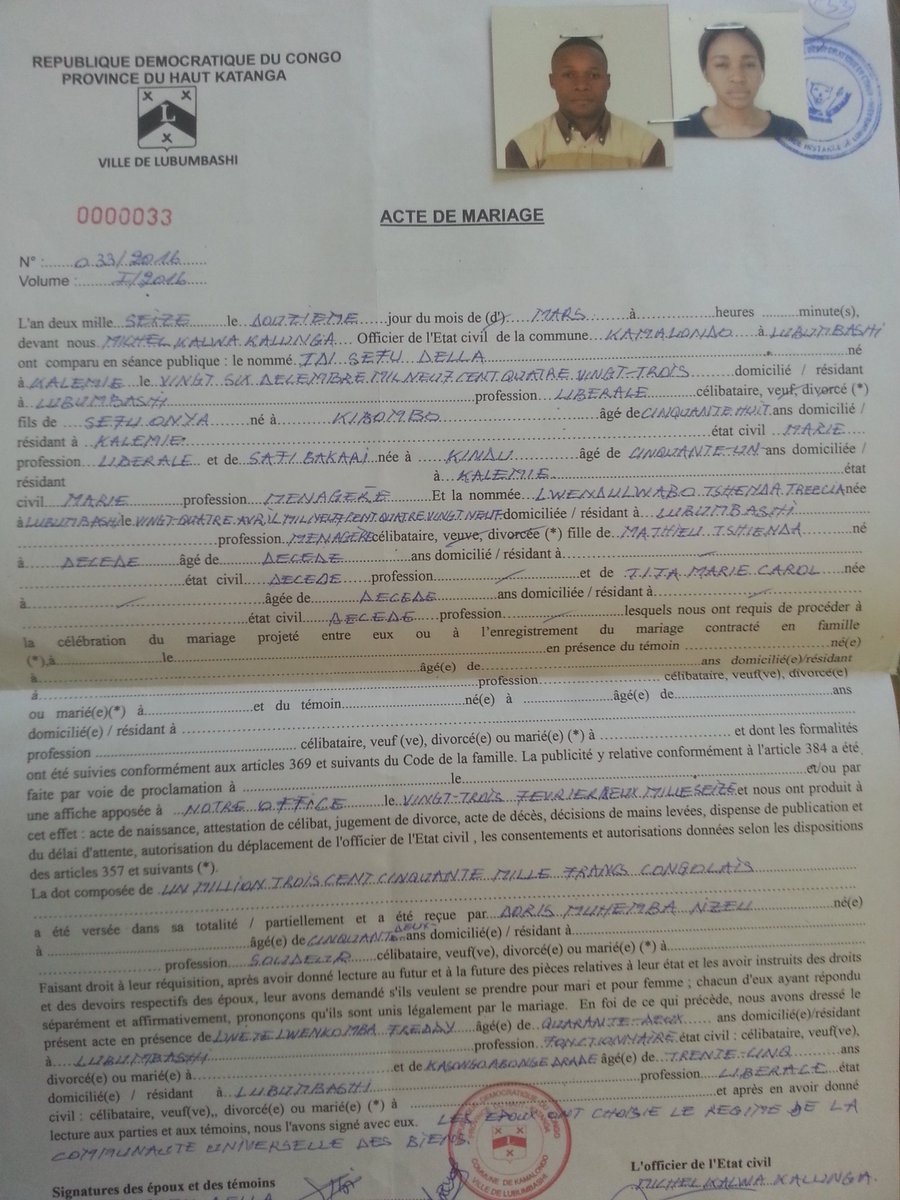 REPUBLIQUE DEMOCRATIQUE DU CONGO
PROVINCE DU HAUT KATANGA
L
VILLE DE LUBUMBASHI
0000033
ACTE DE MARIAGE
N° : 033/2016
Volume : I/2016
L'an deux mille SEIZE le DOUZIEME jour du mois de (d') MARS à heures minute(s),
devant nous MICHEL KALWA KALUNGA Officier de l'Etat civil de la commune KAMALONDO à LUBUMBASHI
ont comparu en séance publique : le nommé IDI SEFU DELLA né
à KALEMIE le VINGT SIX DECEMBRE MIL NEUF CENT QUATRE VINGT-TROIS domicilié / résidant
à LUBUMBASHI profession LIBERALE célibataire, veuf, divorcé (*)
fils de SEFU ONYA né à KIBOMBO âgé de CINQUANTE HUIT ans domicilié /
résidant à KALEMIE état civil MARIE
profession LIBERALE et de SAFI née à KINDU âgé de CINQUANTE-UN ans domiciliée /
résidant à KALEMIE état
civil MARIE profession MENAGERE Et la nommée LWENDULWABO TSHENDA née
à LUBUMBASHI le VINGT-QUATRE AVRIL MIL NEUF CENT QUATRE VINGT NEUF domiciliée / résidant à LUBUMBASHI
profession MENAGERE célibataire, veuve, divorcée (*) fille de MATHIEU TSHENDA né
à DECEDE âgé de DECEDE ans domicilié / résidant à
état civil DECEDE profession et de TITA MARIE CAROL née
à âgée de DECEDE ans domiciliée / résidant à
état civil DECEDE profession lesquels nous ont requis de procéder à
la célébration du mariage projeté entre eux ou à l'enregistrement du mariage contracté en famille
(*),à le en présence du témoin né(e)
à âgé(e) de ans domicilié(e)/résidant
à profession célibataire, veuf(ve), divorcé(e)
ou marié(e)(*) à et du témoin né(e) à âgé(e) de ans
domicilié(e) / résidant à
profession célibataire, veuf (ve), divorcé(e) ou marié(e) (*) à et dont les formalités
ont été suivies conformément aux articles 369 et suivants du Code de la famille. La publicité y relative conformément à l'article 384 a été,
faite par voie de proclamation à le et/ou par
une affiche apposée à NOTRE OFFICE le VINGT-TROIS FEVRIER DEUX MILLE SEIZE et nous ont produit à
cet effet : acte de naissance, attestation de célibat, jugement de divorce, acte de décès, décisions de mains levées, dispense de publication et
du délai d'attente, autorisation du déplacement de l'officier de l'Etat civil , les consentements et autorisations données selon les dispositions
des articles 357 et suivants (*).
La dot composée de UN MILLION TROIS CENT CINQUANTE MILLE FRANCS CONGOLAIS
a été versée dans sa totalité / partiellement et a été reçue par DORIS MUHEMBA NZEU né(e)
à âgé(e) de CINQUANTE DEUX ans domicilié(e) / résidant à
profession SOUDEUR célibataire, veuf(ve), divorcé(e) ou marié(e) (*) à
Faisant droit à leur réquisition, après avoir donné lecture au futur et à la future des pièces relatives à leur état et les avoir instruits des droits
et des devoirs respectifs des époux, leur avons demandé s'ils veulent se prendre pour mari et pour femme ; chacun d'eux ayant répondu
séparément et affirmativement, prononçons qu'ils sont unis légalement par le mariage. En foi de ce qui précède, nous avons dressé le
présent acte en présence de LWETE LWENKOMBA FREDDY âgé(e) de QUARANTE-DEUX ans domicilié(e)/résidant
à LUBUMBASHI profession FONCTIONNAIRE état civil : célibataire, veuf(ve),
divorcé(e) ou marié(e) à et de KASONGO ABONGE DRADE âgé(e) de TRENTE CINQ ans
domicilié(e) / résidant à LUBUMBASHI profession LIBERALE état
civil : célibataire, veuf(ve),, divorcé(e) ou marié(e) (*) à et après en avoir donné
lecture aux parties et aux témoins, nous l'avons signé avec eux. LES EPOUX ONT CHOISIE LE REGIME DE LA
COMMUNAUTE UNIVERSELLE DES BIENS.
COMMUNE DE KAMALONDO
VILLE DE LUBUMBASHI
Signatures des époux et des témoins
L'officier de l'Etat civil
MICHEL KALWA KALUNGA